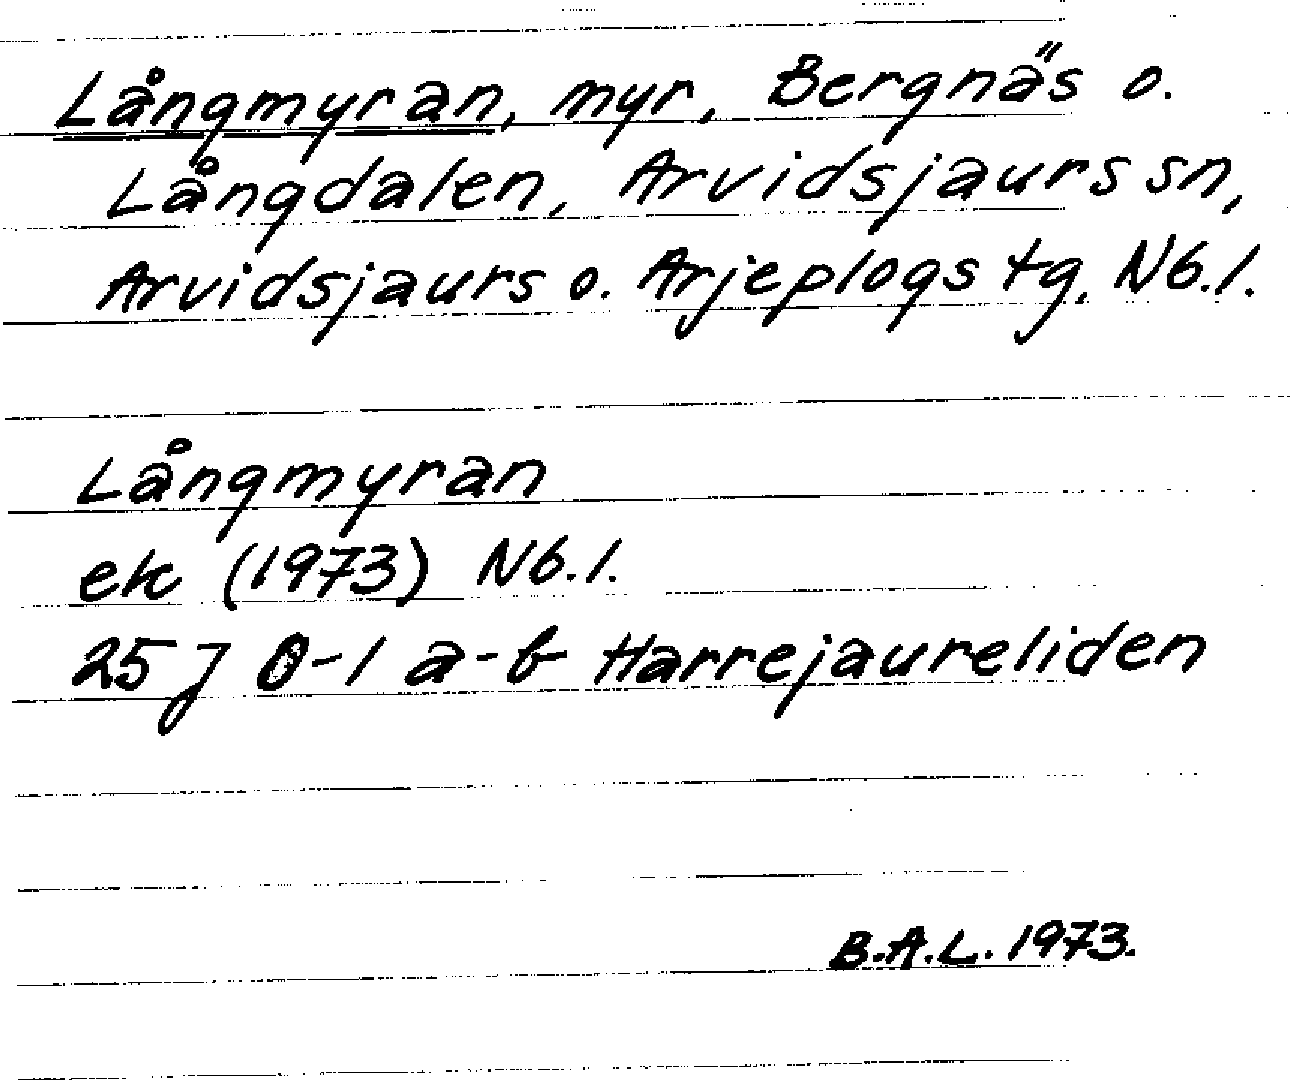 Långmyran, myr, Bergnäs o.
Långdalen, Arvidsjaurs sn,
Arvidsjaurs o. Arjeplogs tg, Nb.l.
Långmyran
ek (1973) Nb.l.
25 J 0-1 a-b Harrejaureliden
B.A.L. 1973.